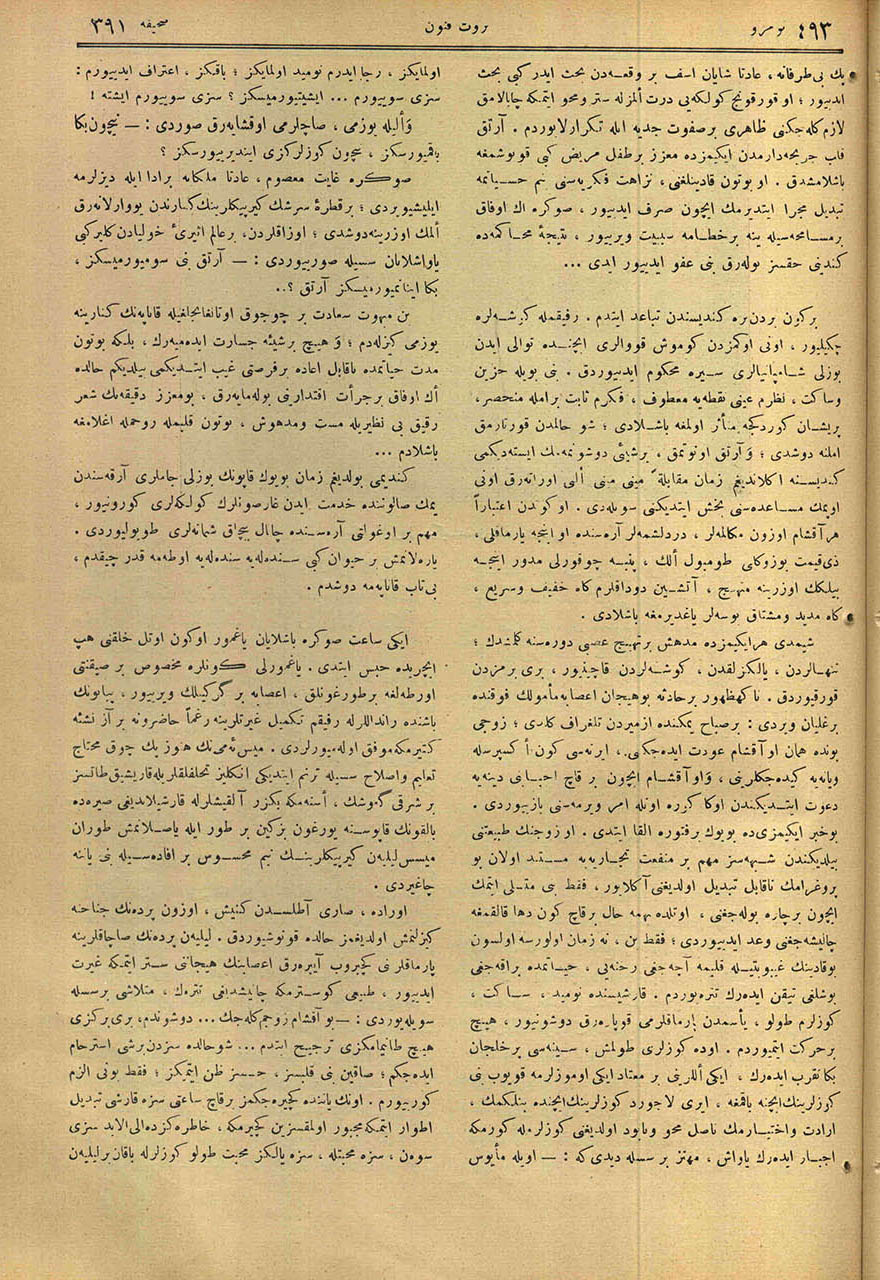 نومرو ٤٩٣
ثروت فنون
صحیفه ٣٩١
پك بی‌طرفانه ، عادتا شایان اسف بر وقعه‌دن بحث ایدر كبی بحث
ایدییور ؛ او قورقونج كولكه‌یی درت المزله ستر ومحو ایتمكه چابالامق
لازم كله‌جكنی ظاهری بر صفوت جدیه ایله تكرارلایوردم . آرتق
قلب جریحه‌دارمدن ایكیمزده معزز بر طفل مریض كبی قونوشمغه
باشلامشدق . او بوتون قادینلغنی ، نزاهت فكریه‌سنی نیم حسیاتمه
تبدیل مجرا ایتدیرمك ایچون صرف ایدییور ، صوكره اك اوفاق
بر مسامحه‌سیله ینه بر خطامه سببیت ویرییور ، نتیجهٔ محاكمه‌ده
كندینی حقسز بوله‌رق بنی عفو ایدییور ایدی ...
بركون بردن‌بره كندیسندن تباعد ایتدم . رفیقمله كوشه‌لره
چكیلیور ، اونی اوكمزدن كوموش قووالری ایچنده توالی ایدن
بوزلی شامپانیالری سیره محكوم ایدییوردق . بنی بویله حزین
وساكت ، نظرم عینی نقطه‌یه معطوف ، فكرم ثابت بر امله منحصر ،
پریشان كوردكجه متأثر اولمغه باشلادی ؛ شو حالمدن قورتارمق
املنه دوشدی ؛ وآرتق اونوتمق ، برشیئی دوشونمه‌مك ایسته‌دیكمی
كندیسنه اكلاتدیغم زمان مقابلةً مینی مینی الی اوزاته‌رق اونی
اوپمك مساعده‌سنی بخش ایتدیكنی سویله‌دی . او كوندن اعتباراً
هر آقشام اوزون مكالمه‌لر ، دردلشمه‌لر آره‌سنده او اینجه پارماقلی ،
ذی‌قیمت یوزوكلی طومبول الك ، پنبه چوقورلی مدور اینجه
بیلكك اوزرینه متهیج ، آتشین دوداقلرم كاه خفیف وسریع ،
كاه مدید ومشتاق بوسه‌لر یاغدیرمغه باشلادی .
شیمدی هر ایكیمزده مدهش بر تهییج عصبی دوره‌سنه كلمشدك ؛
تنهالردن ، یالكزلقدن ، كوشه‌لردن قاچنیور ، بری برمزدن
قورقیوردق . ناكهظهور بر حادثه بو هیجان اعصابه مأمولك فوقنده
بر غلیان ویردی : بر صباح یمكنده ازمیردن تلغراف كلدی ؛ زوجی
بونده همان او آقشام عودت ایده‌جكنی ، ایرته‌سی كون اكسپرسله
ویانه‌یه كیده‌جكلرینی ، واو آقشام ایچون بر قاچ احبابنی دینه‌یه
دعوت ایتدیكندن اوكا كوره اوتله امر ویرمه‌سنی یازییوردی .
بو خبر ایكیمزی‌ده بویوك بر فتوره القا ایتدی . او زوجنك طبیعتنی
بیلدیكندن شبهه‌سز مهم بر منفعت تجاریه‌یه مستند اولان بو
پروغرامك ناقابل تبدیل اولدیغنی آكلایور ، فقط بنی متسلی ایتمك
ایچون بر چاره بوله‌جغنی ، اوتلده بهمه حال بر قاچ كون دها قالمغه
چالیشه‌جغنی وعد ایدییوردی ؛ فقط بن ، نه زمان اولورسه اولسون
بو قادینك غیبوبتیله قلبمه آچه‌جغی رخنه‌یی ، حیاتمده براقه‌جغی
بوشلغی تیقن ایده‌رك تتره‌یوردم . قارشیسنده نومید ، ساكت ،
كوزلرم طولو ، یأسمدن پارماقلرمی قوپاره‌رق دوشونیور ، هیچ
بر حركت ایتمیوردم . اوده كوزلری طولمش ، سینه‌سی بر خلجان
بكا تقرب ایده‌رك ، ایكی اللرینی بر معتاد ایكی اوموزلرمه قویوب بنی
كوزلرینك ایچنه باقمغه ، ایری لاجورد كوزلرینك ایچنده بنلكمك ،
ارادت واختیارمك ناصل محو ونابود اولدیغنی كوزلرمله كورمكه
اجبار ایده‌رك یاواش ، مهتز بر سسله دیدی كه : — اویله مأیوس
اولمایكز ، رجا ایدرم نومید اولمایكز ؛ باقكز ، اعتراف ایدییورم :
سزی سویورم ... ایشیتیورمیسكز ؟ سزی سویورم ایشته !
والیله یوزمی ، صاچلرمی اوقشایه‌رق صوردی : — نیچون بكا
باقمیورسكز ، نیچون كوزلركزی ایندیرییورسكز ؟
صوكره غایت معصوم ، عادتا ملكانه بر ادا ایله دیزلرمه
ایلیشیویردی ؛ بر قطرهٔ سرشك كیرپیكلرینك كنارندن یووارلانه‌رق
المك اوزرینه دوشدی ؛ اوزاقلردن ، بر عالم اثیرئ خولیادن كلیركبی
یاواشلایان سسیله صورییوردی : — آرتق بنی سومیورمیسكز ،
بكا اینانمیورمیسكز آرتق ؟..
بن مبهوت سعادت بر چوجوق اوتانغانجلغیله قاناپه‌نك كنارینه
یوزمی كیزله‌دم ؛ وهیچ برشیئه جسارت ایده‌میه‌رك ، بلكه بوتون
مدت حیاتمده ناقابل اعاده بر فرصتی غیب ایتدیكمی بیلدیكم حالده
اك اوفاق بر جرأت اقتدارینی بوله‌مایه‌رق ، بو معزز دقیقه‌نك شعر
رقیق بی نظیریله مست ومدهوش ، بوتون قلبمله روحمله اغلامغه
باشلادم ...
كندیمی بولدیغم زمان بویوك قاپونك بوزلی جاملری آرقه‌سندن
یمك صالوننده خدمت ایدن غارصونلرك كولكه‌لری كورونیور ،
مهم بر اوغولتی آره‌سنده چاتال بیچاق شماته‌لری طویولیوردی .
یاره‌لانمش بر حیوان كبی سنده‌له‌یه سنده‌له‌یه اوطه‌مه قدر چیقدم ،
بی‌تاب قاناپه‌مه دوشدم .
ایكی ساعت صوكره باشلایان یاغمور او كون اوتل خلقنی هپ
ایچریده حبس ایتدی . یاغمورلی كونلره مخصوص بر صیقنتی
اورطه‌لغه بر طورغونلق ، اعصابه بر كركینلك ویرییور ، پیانونك
باشنده رانداللرله رفیقم تكمیل غیرتلرینه رغماً حاضرونه بر آز نشئه
كتیرمكه موفق اوله‌میورلردی . میس نه‌می‌نك هنوز پك چوق محتاج
تعلیم واصلاح سسیله ترنم ایتدیكی انكلیز تحلفلقلریله قاریشیق طاتسز
بر شرقی كوشك ، اسنه‌مكه بكزر آلقیشلرله قارشیلاندیغی صیره‌ده
بالقونك قاپوسنه یورغون بزكین بر طور ایله یاصلانمش طوران
میسس لیلیه‌ن كیرپیكلرینك نیم محسوس بر افاده‌سیله بنی یاننه
چاغیردی .
اوراده ، صاری آطلسدن كنیش ، اوزون پرده‌نك جناحنه
كیزلنمش اولدیغمز حالده قونوشیوردق . لیلیه‌ن پرده‌نك صاچاقلرینه
پارماقلرنی كچیروب آییره‌رق اعصابنك هیجاننی ستر ایتمكه غیرت
ایدییور ، طبیعی كوسترمكه چالیشدیغی تتره‌ك ، متلاشی بر سسله
سویله‌یوردی : — بو آقشام زوجم كله‌جك ... دوشوندم ، بری بركزی
هیچ طانیمامكزی ترجیح ایتدم ... شو حالده سزدن برشی استرحام
ایده‌جكم ؛ صاقین بنی قلبسز ، حسسز ظن ایتمیكز ؛ فقط بونی الزم
كورییورم . اونك یاننده كچیره‌جكمز بر قاچ ساعتی سزه قارشی تبدیل
اطوار ایتمكه مجبور اولمقسزین كچیرمكه ، خاطره‌كزده الی‌الابد سزی
سوه‌ن ، سزه محبتله ، سزه یالكز محبت طولو كوزلرله باقان بر لیلیه‌ن